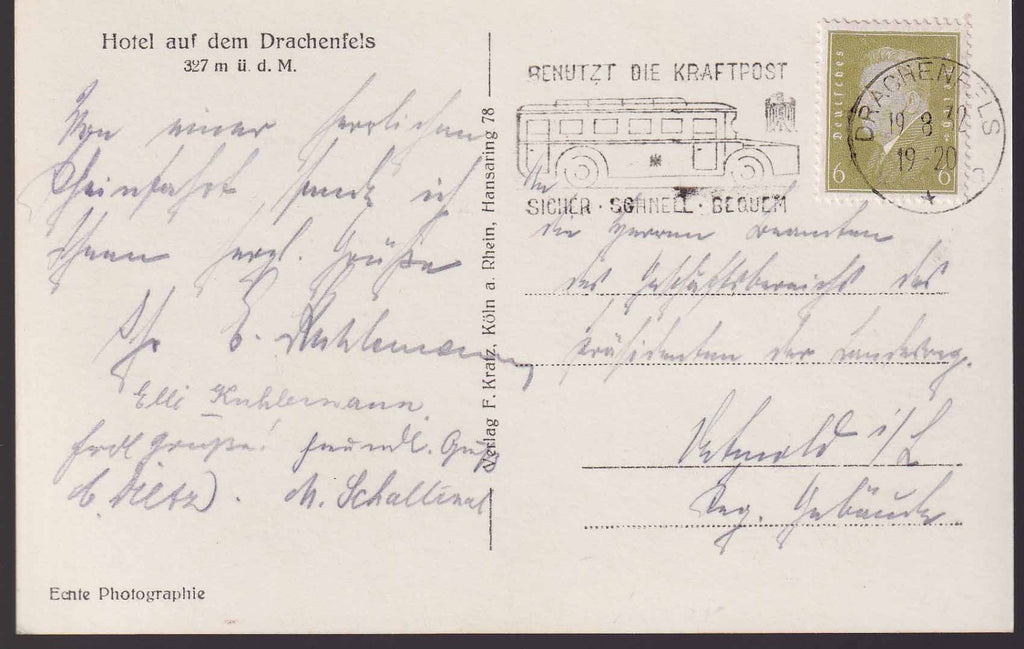 Hotel auf dem Drachenfels
327 m ü. d. M.
Von einer herrlichen
Rheinfahrt sendet ich
Ihnen herzl. Grüße
Ihr E. Kuhlemann
Elli Kuhlemann.
Grüße! freundl. Grüße
M.
Echte Photographie
Verlag F. Kratz, Köln a. Rhein, Hansaring 78
BENUTZT DIE KRAFTPOST
SICHER · SCHNELL · BEQUEM
Deutsches
6 6
DRACHENFELS
19 8 32
19-20
An
die Herren Beamten
des Geschäftsbereichs des
Präsidenten der Landesreg.
Detmold i/L
Reg. Gebäude